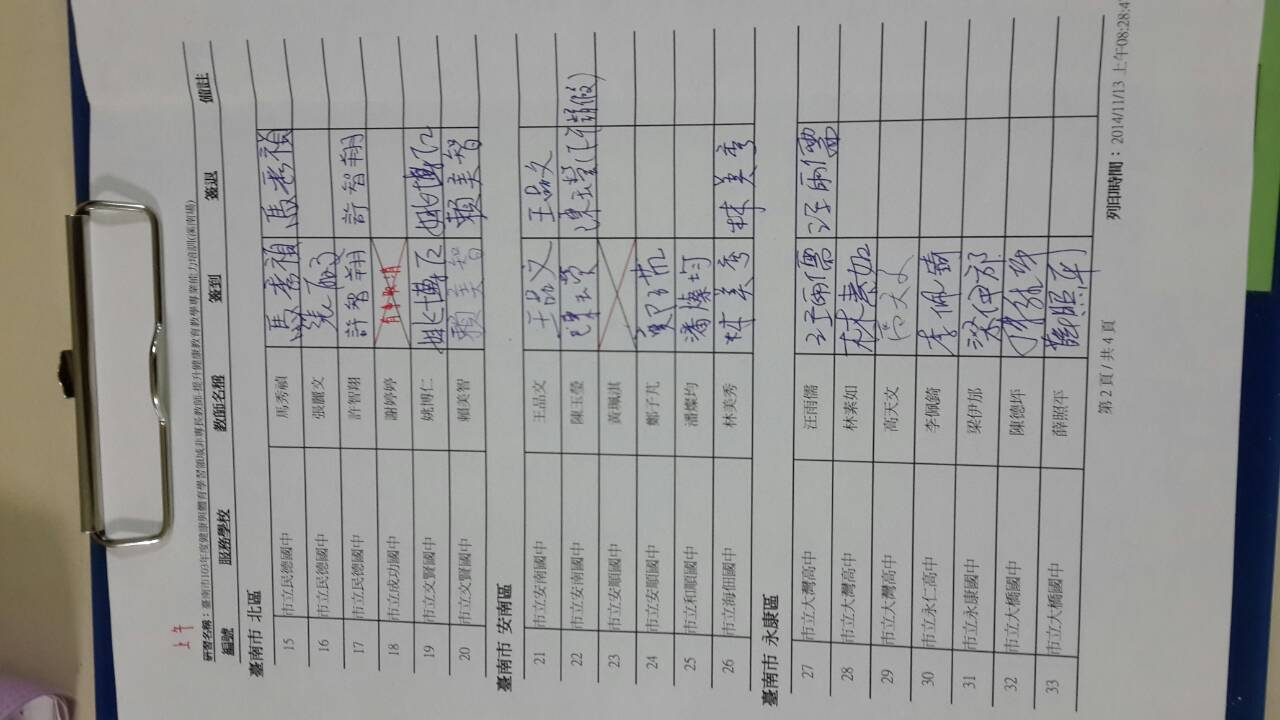 上午
研習名稱：臺南市103年度健康與體育學習領域非專長教師-提升健康教育教學專業能力培訓(溪南場)
編號 服務學校 教師名稱 簽到 簽退 備註
臺南市 北區
15 市立民德國中 馬秀禎 馬秀禎 馬秀禎
16 市立民德國中 張麗文
17 市立民德國中 許智翔 許智翔 許智翔
18 市立成功國中 謝婷婷
19 市立文賢國中 姚博仁 姚博仁 姚博仁
20 市立文賢國中 賴美智 賴美智 賴美智
臺南市 安南區
21 市立安南國中 王品文 王品文 王品文
22 市立安南國中 陳玉瑩 陳玉瑩 陳玉瑩
23 市立安順國中 黃珮淇
24 市立安順國中 鄭子芃
25 市立和順國中 潘燦均 潘燦均
26 市立海佃國中 林美秀 林美秀 林美秀
臺南市 永康區
27 市立大灣高中 汪雨儒 汪雨儒 汪雨儒
28 市立大灣高中 林素如 林素如
29 市立大灣高中 高天文
30 市立永仁高中 李佩錡 李佩錡
31 市立永康國中 梁伊郁
32 市立大橋國中 陳德坪
33 市立大橋國中 薛照平 薛照平
第 2 頁 / 共 4 頁
列印時間： 2014/11/13 上午08:28:4